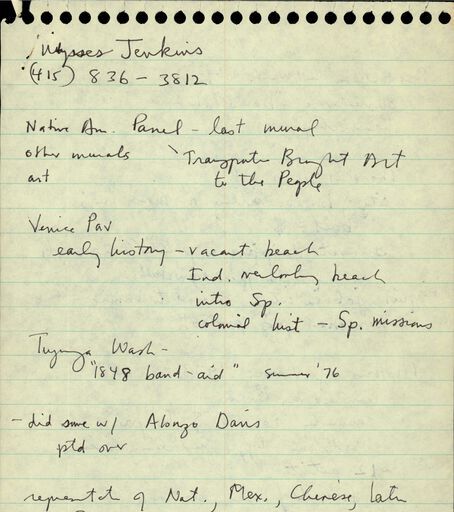 Ulysses Jenkins
(415) 836-3812
Native Am. Panel - last mural
other murals "Transportn Brought Art
art to the People
Venice Pav
early history - vacant beach
Ind. overlooking beach
intro Sp.
colonial hist - Sp. missions
Tujunga Wash -
"1848 band-aid" summer '76
- did some w/ Alonzo Davis
ptd over
representatn of Nat., Mex., Chinese, Latin